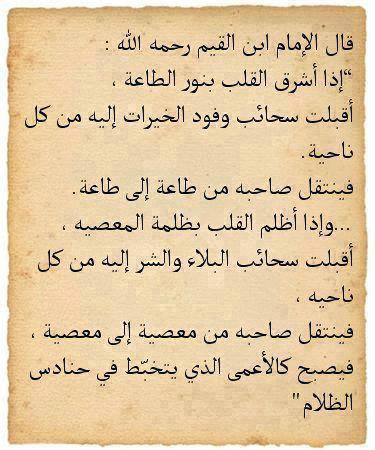 قال الإمام ابن القيم رحمه الله :
“إذا أشرق القلب بنور الطاعة ،
أقبلت سحائب وفود الخيرات إليه من كل
ناحية.
فينتقل صاحبه من طاعة إلى طاعة.
...وإذا أظلم القلب بظلمة المعصيه ،
أقبلت سحائب البلاء والشر إليه من كل
ناحيه ،
فينتقل صاحبه من معصية إلى معصية ،
فيصبح كالأعمى الذي يتخبّط في حنادس
الظلام"